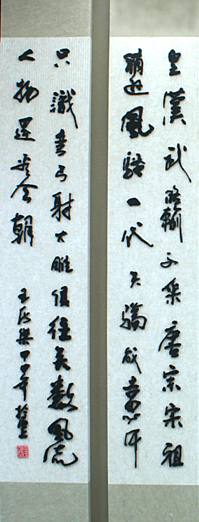 皇漢武略輸文采唐宗宋祖
稍遜風騷一代天驕成吉思汗
只識彎弓射大雕俱往矣數風流
人物還看今朝